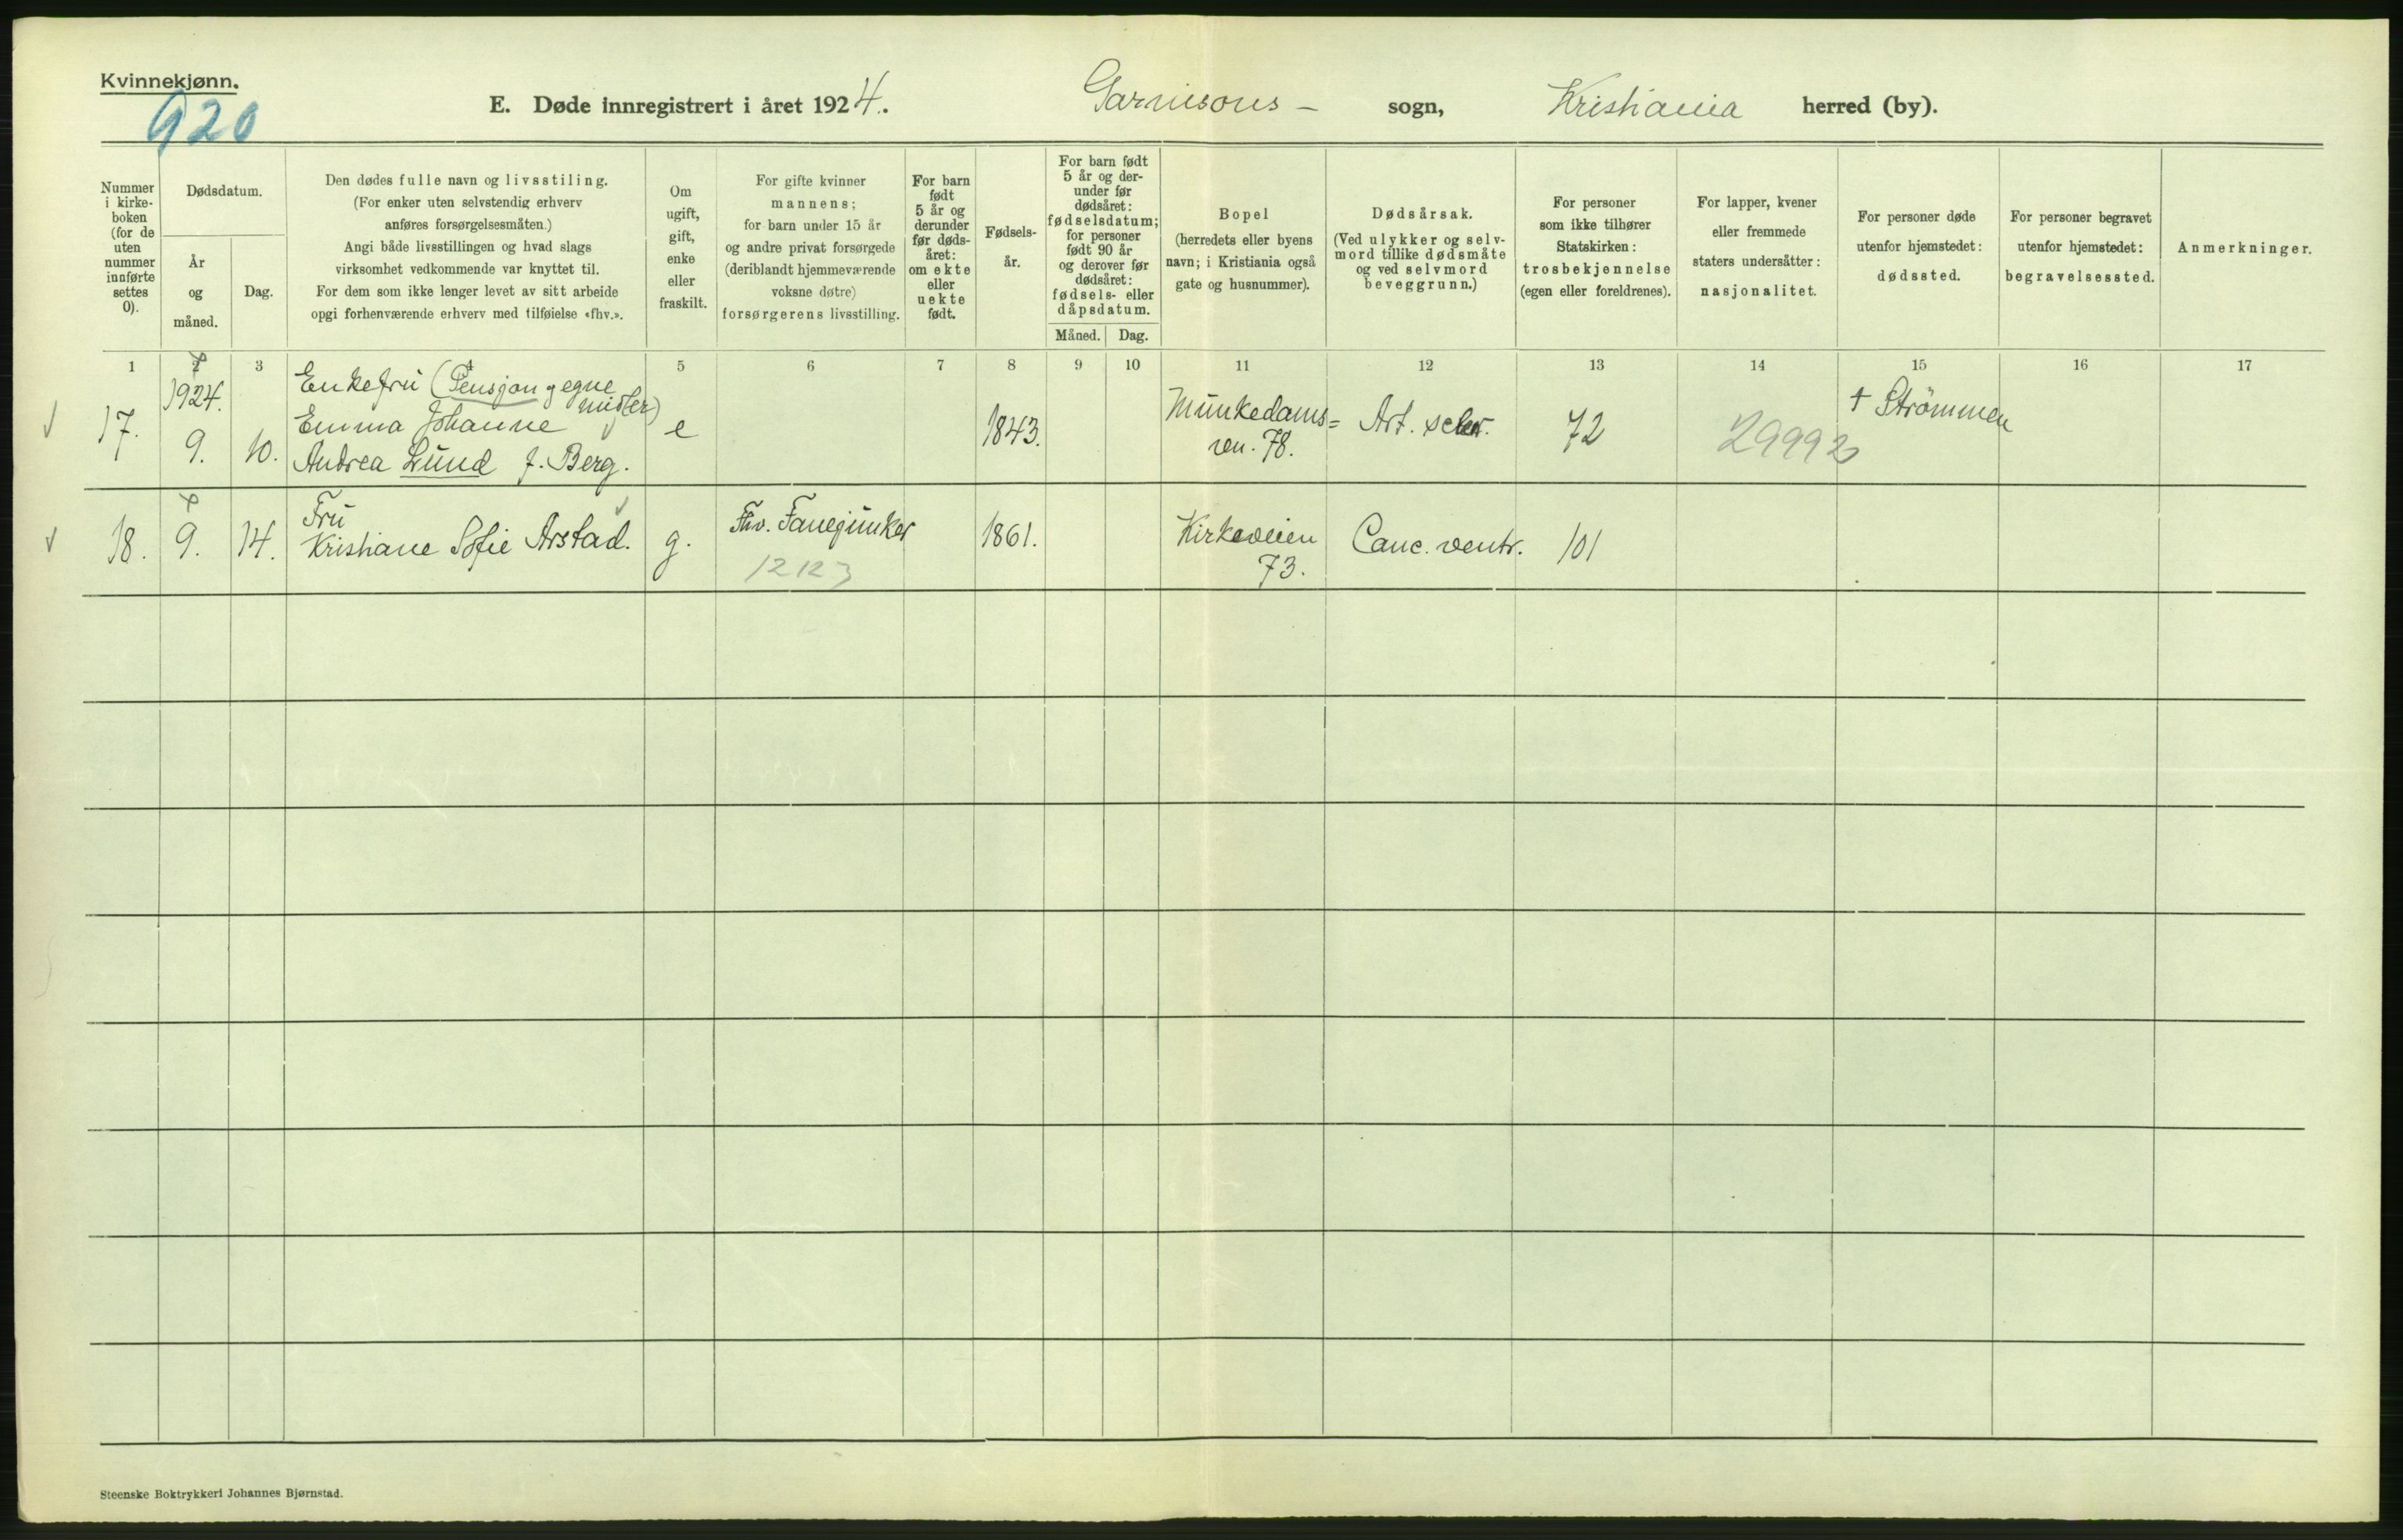 Kvinnekjønn.
920
E. Døde innregistrert i året 1924. Garnisons - sogn, Kristiania herred (by).
Nummer i kirke- boken (for de uten nummer innførte settes 0).
Dødsdatum.
År og måned.
Dag.
Den dødes fulle navn og livsstiling.
(For enker uten selvstendig erhverv
anføres forsørgelsesmåten.)
Angi både livsstillingen og hvad slags
virksomhet vedkommende var knyttet til.
For dem som ikke lenger levet av sitt arbeide
opgi forhenværende erhverv med tilføielse «fhv.».
Om
ugift,
gift,
enke
eller
fraskilt.
For gifte kvinner
mannens;
for barn under 15 år
og andre privat forsørgede
(deriblandt hjemmeværende
voksne døtre)
forsørgerens livsstilling.
For barn
født
5 år og
derunder
før døds-
året:
om ekte
eller
uekte
født.
Fødsels-
år.
For barn født
5 år og der-
under før
dødsåret:
fødselsdatum;
for personer
født 90 år
og derover før
dødsåret:
fødsels- eller
dåpsdatum.
Måned. Dag.
Bopel
(herredets eller byens
navn; i Kristiania også
gate og husnummer).
Dødsårsak.
(Ved ulykker og selv-
mord tillike dødsmåte
og ved selvmord
beveggrunn.)
For personer
som ikke tilhører
Statskirken:
trosbekjennelse
(egen eller foreldrenes).
For lapper, kvener
eller fremmede
staters undersåtter:
nasjonalitet.
For personer døde
utenfor hjemstedet:
dødssted.
For personer begravet
utenfor hjemstedet:
begravelsessted.
Anmerkninger.
1 2 3 4 5 6 7 8 9 10 11 12 13 14 15 16 17
17. 1924. 9. 10.
Enkefru (Pensjon og egne
midler)
Emma Johanne
Andrea Lund f. Berg.
e 1843.
Munkedams=
ven. 78.
Art. scler. 72 29992 † Strömmen
18. 9. 14.
Fru
Kristiane Sofie Arstad.
g. Fhv. Fanejunker
12123
1861.
Kirkeveien
73.
Canc. ventr. 101
Steenske Boktrykkeri Johannes Bjørnstad.